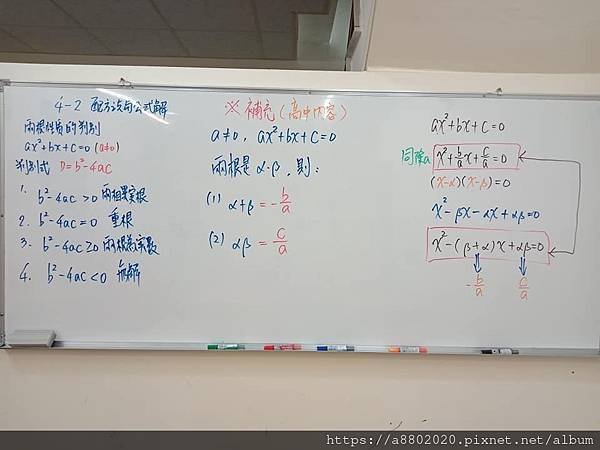 4-2 配方法與公式解
兩根性質的判別
ax²+bx+c=0 (a≠0)
判別式 D=b²-4ac
1. b²-4ac>0 兩相異實根
2. b²-4ac=0 重根
3. b²-4ac≥0 兩根為實數
4. b²-4ac<0 無解
※ 補充(高中內容)
a≠0, ax²+bx+c=0
兩根是 α、β, 則:
(1) α+β=-b/a
(2) αβ=c/a
ax²+bx+c=0
同除a x²+b/a x+c/a=0
(x-α)(x-β)=0
x²-βx-αx+αβ=0
x²-(β+α)x+αβ=0
-b/a c/a
https://a8802020.pixnet.net/album